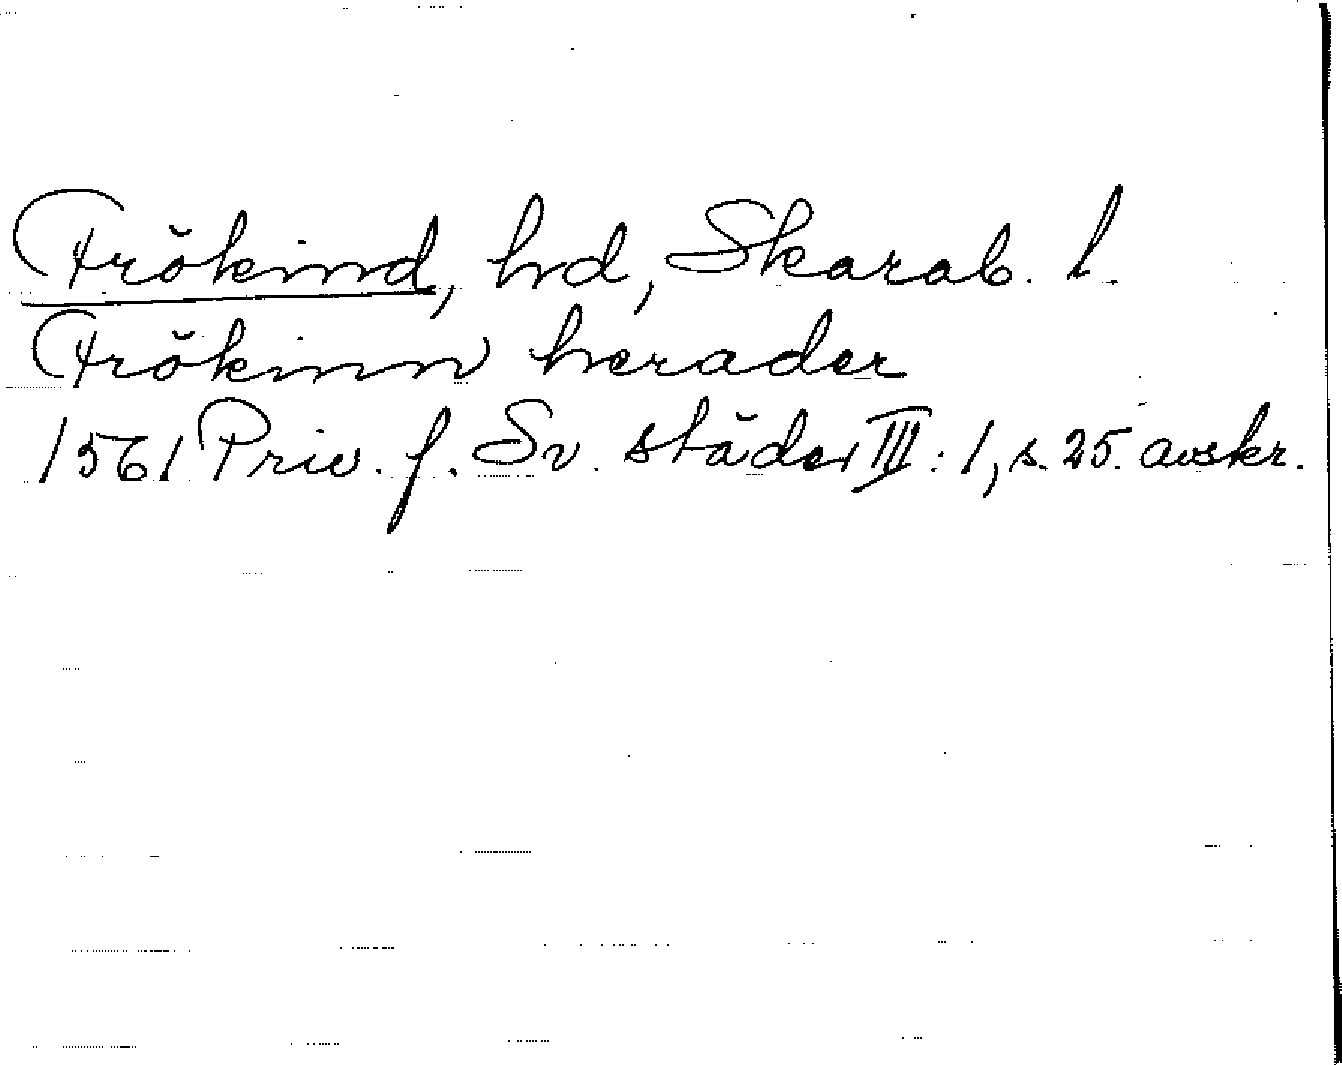 Frökind, hrd, Skarab. l.
Frökinn herader
1561 Priv. f. Sv. städer III: 1, s. 25. avskr.